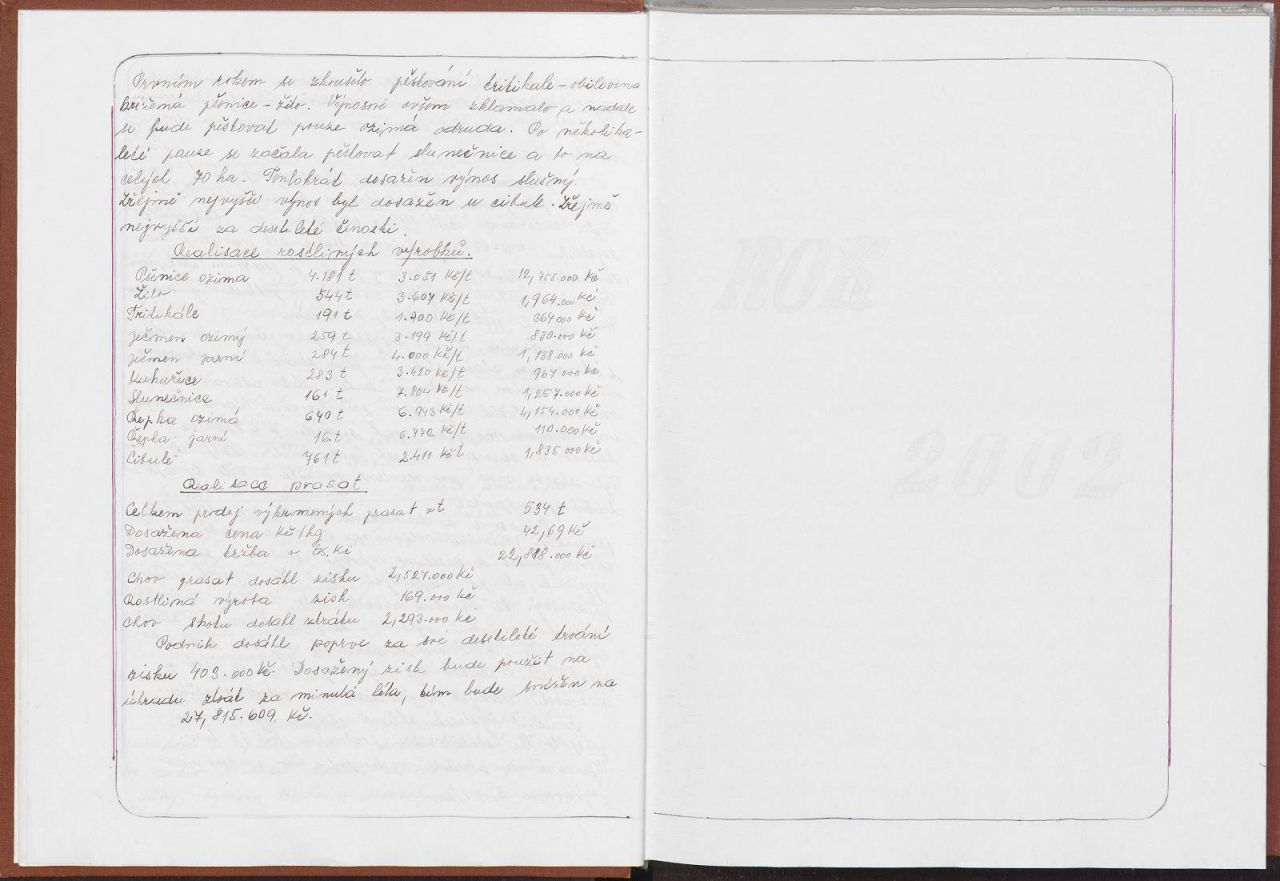 Prvním rokem se zkoušelo pěstování tritikale - obilovina
křížená pšenice - žito. Výnosově ovšem zklamalo a nadále
se bude pěstovat pouze ozimá odruda. Po několika-
leté pauze se začala pěstovat slunečnice a to na
celých 70 ha. Tentokrát dosažen výnos slušný.
Zřejmě nejvyšší výnos byl dosažen u cibule. Zřejmě
nejvyšší za desetileté činosti.
Realisace rostliných výrobků.
Pšenice ozima 4.181 t 3.051 Kč/t 12,755.000 Kč
Žito 544 t 3.607 Kč/t 1,964.000 Kč
Tritikále 191 t 1.900 Kč/t 364000 Kč
ječmen ozimý 259 t 3.199 Kč/t 830.000 Kč
ječmen jarní 284 t 4.000 Kč/t 1,138.000 Kč
Kukuřice 283 t 3.420 Kč/t 967000 Kč
Slunečnice 161 t 7.804 Kč/t 1,257.000 Kč
Řepka ozimá 649 t 6.943 Kč/t 4,154.000 Kč
Řepka jarní 16 t 6.772 Kč/t 110.000 Kč
Cibule 761 t 2.411 Kč t 1,835 000 Kč
Realisace prasat
Celkem prodej výkrmených prasat vt 534 t
Dosažena cena Kč/kg 42,69 Kč
Dosažena tržba v tis. Kč 22,818.000 Kč
Chov prasat dosáhl zisku 2,527.000 Kč
Rostliná výroba zisk 169.000 Kč
Chov skotu dosáhl ztrátu 2,293.000 Kč
Podnik dosáhl poprve za své desetileté trvání
zisku 403.000 Kč. Dosažený zisk bude použit na
úhradu ztrát za minulá léta, tím bude snížen na
27,815.609 Kč.
ROK
2002